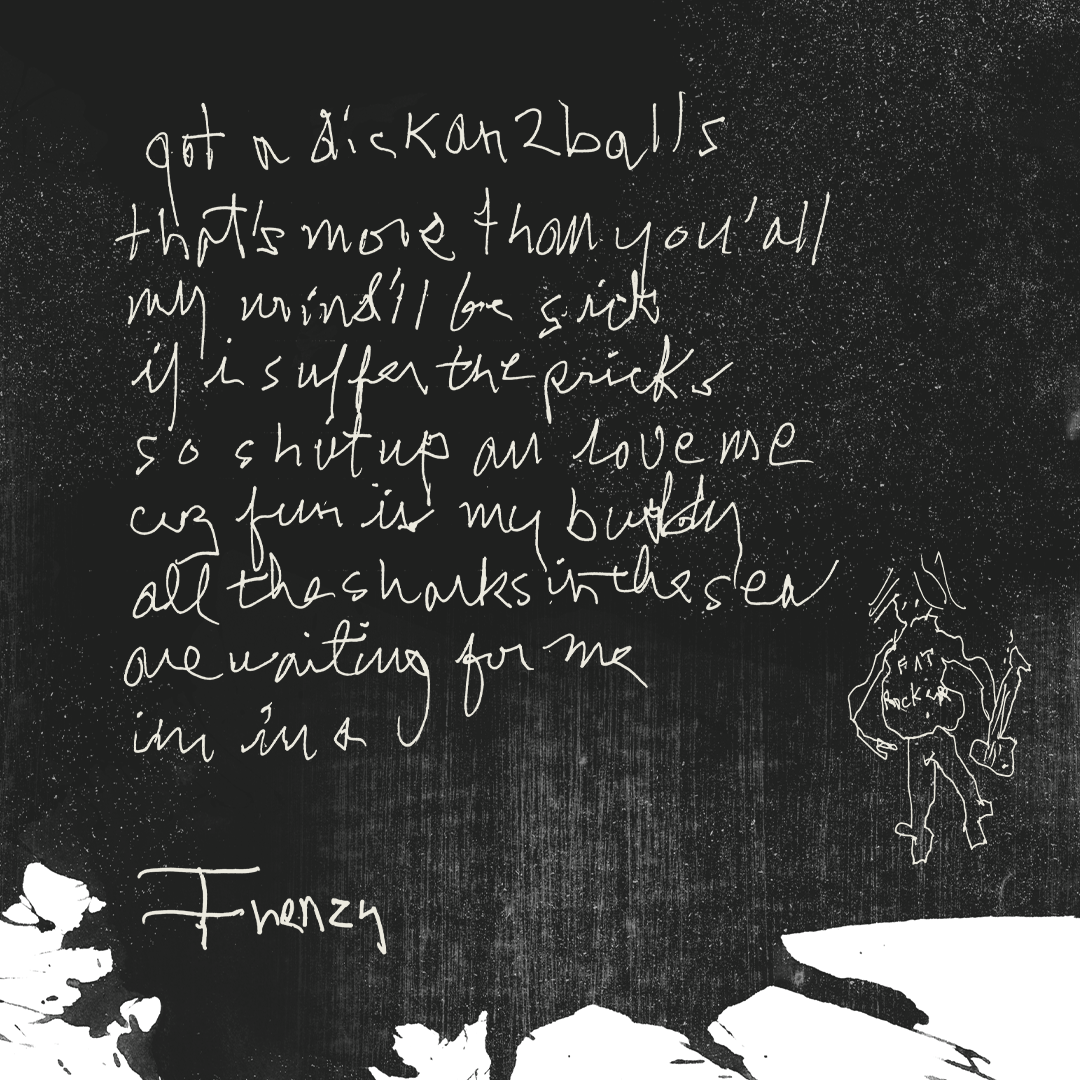 got a dick an 2 balls
that's more than you'all
my mind'll be sick
if i suffer the pricks
so shutup an love me
cuz fun is my buddy
all the sharks in the sea
are waiting for me
im in a
FAT
ROCKER
Frenzy